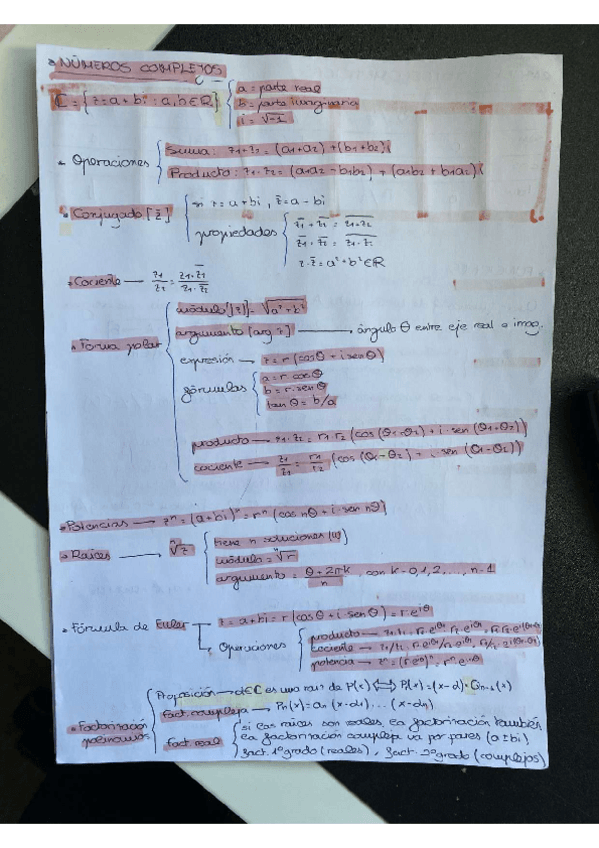 NÚMEROS COMPLEJOS
ℂ = {z = a + bi : a, b ∈ ℝ} { a = parte real
b = parte imaginaria
i = √-1
Operaciones { Suma: z1+z2 = (a1+a2) + (b1+b2)i
Producto: z1·z2 = (a1a2 - b1b2) + (a1b2 + b1a2)i
Conjugado [z̄] { si z = a + bi, z̄ = a - bi
propiedades { z̄1 + z̄2 = \overline{z1+z2}
z̄1 · z̄2 = \overline{z1·z2}
z·z̄ = a² + b² ∈ ℝ
Cociente — z1/z2 = z1·z̄2 / z2·z̄2
Forma polar { módulo [z] = √a²+b²
argumento [arg z] → ángulo θ entre eje real e imag.
expresión → z = r (cos θ + i sen θ)
fórmulas { a = r cos θ
b = r·sen θ
tan θ = b/a
producto → z1·z2 = r1·r2 (cos (θ1+θ2) + i·sen (θ1+θ2))
cociente → z1/z2 = r1/r2 (cos (θ1-θ2) + i·sen (θ1-θ2))
Potencias → zⁿ = (a+bi)ⁿ = rⁿ (cos nθ + i·sen nθ)
Raíces → ⁿ√z { tiene n soluciones
módulo = ⁿ√r
argumento = θ+2πk / n, con k = 0,1,2,..., n-1
Fórmula de Euler { z = a+bi = r(cos θ + i·sen θ) = r e^iθ
Operaciones { producto →
cociente →
potencia → zⁿ = (r e^iθ)ⁿ = rⁿ e^inθ
Factorización polinomios { Proposición → α ∈ ℂ es una raíz de P(x) ⟺ P(x) = (x-α)·Qn-1(x)
fact. compleja → Pn(x) = an (x-α1) ... (x-αn)
fact. real { si las raíces son reales, la factorización también
la factorización compleja va por pares (a ± bi)
fact. 1º grado (reales), fact. 2º grado (complejos)